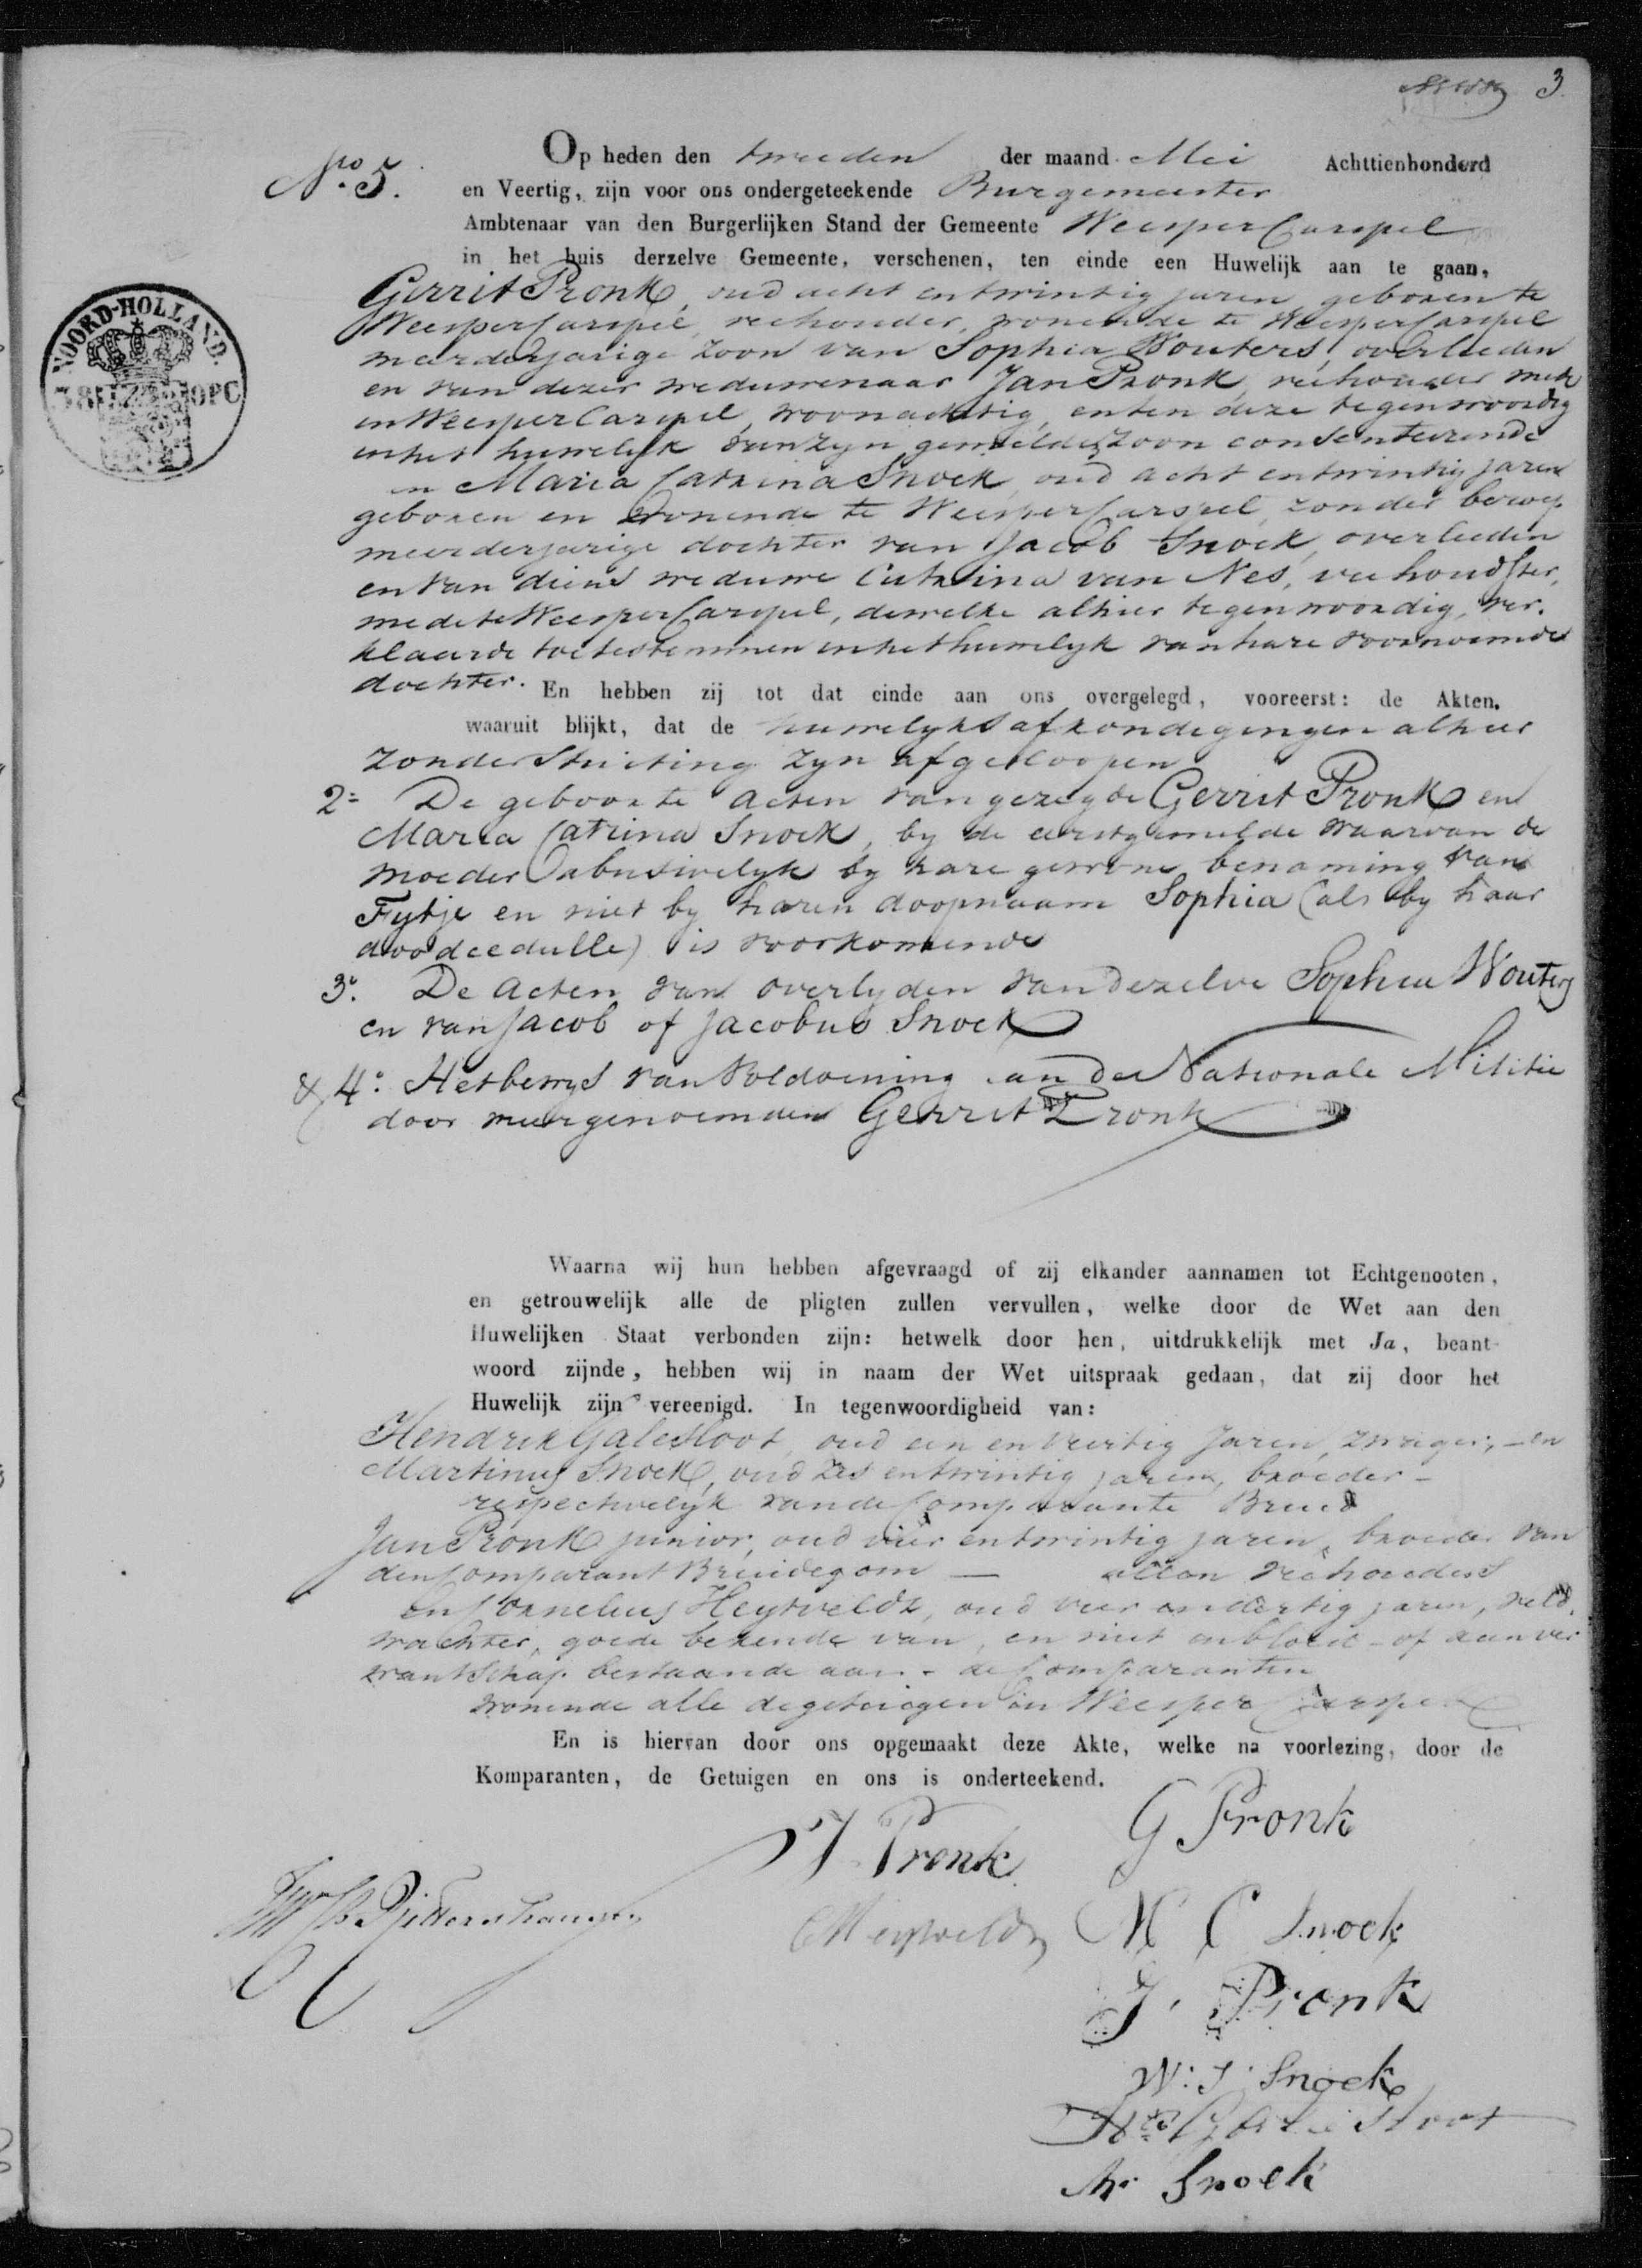 3
No. 5.
Op heden den tweeden der maand Mei Achttienhonderd
en Veertig, zijn voor ons ondergeteekende Burgemeester
Ambtenaar van den Burgerlijken Stand der Gemeente WeesperCarspel
in het huis derzelve Gemeente, verschenen, ten einde een Huwelijk aan te gaan,
NOORD-HOLLAND.
Gerrit Pronk, oud acht en twintig jaren, geboren te
WeesperCarspel, veehouder, wonende te WeesperCarspel
meerderjarige zoon van Sophia Wouters, overleeden
en van dezer weduwenaar Jan Pronk, veehouder mede
in WeesperCarspel, woonachtig, en ten deze tegenswoordig
in het huwelyk van zyn gemelde zoon consenteerende
en Maria Catrina Snoek, oud acht en twintig jaren
geboren en wonende te WeesperCarspel, zonder beroep
meerderjarige dochter van Jacob Snoek, overleeden
en van diens weduwe Catrina van Nes, veehoudster,
mede te WeesperCarspel, dewelke alhier tegenwoordig, ver-
klaarde toetestemmen in het huwelyk van hare voornoemde
dochter.
En hebben zij tot dat einde aan ons overgelegd, vooreerst: de Akten,
waaruit blijkt, dat de huwelyks afkondegingen alhier
zonder Stuiting zyn afgeloopen
2= De geboorte acten van gezegde Gerrit Pronk en
Maria Catrina Snoek, by de eerstgemelde waarvan de
moeder abusivelyk by hare gewone benaming van
Fytje en niet by haren doopnaam Sophia (als by haar
doodcedulle) is voorkomende
3e. De acten van overlyden van dezelve Sophia Wouters
en van Jacob of Jacobus Snoek
& 4e. Het bewys van Voldoening aan de Nationale Militie
door meergenoemden Gerrit Pronk
Waarna wij hun hebben afgevraagd of zij elkander aannamen tot Echtgenooten,
en getrouwelijk alle de pligten zullen vervullen, welke door de Wet aan den
Huwelijken Staat verbonden zijn: hetwelk door hen, uitdrukkelijk met Ja, beant-
woord zijnde, hebben wij in naam der Wet uitspraak gedaan, dat zij door het
Huwelijk zijn vereenigd. In tegenwoordigheid van:
Hendrik Galesloot, oud een en veertig Jaren, zwager, - en
Martinus Snoek, oud zes en twintig jaren, broeder -
respectivelyk van de Comparante Bruid
Jan Pronk junior, oud vier en twintig jaren, broeder van
den Comparant Bruidegom — allen veehouders
en Cornelius Heytveldt, oud vier en dertig jaren, veld-
wachter, goede bekende van, en niet in bloed - of aanver
wantschap bestaande aan - de Comparanten
wonende alle de getuigen in WeesperCarspel
En is hiervan door ons opgemaakt deze Akte, welke na voorlezing, door de
Komparanten, de Getuigen en ons is onderteekend.
G Pronk
J. Pronk
M C Snoek
J. Pronk
Snoek
M. Snoek